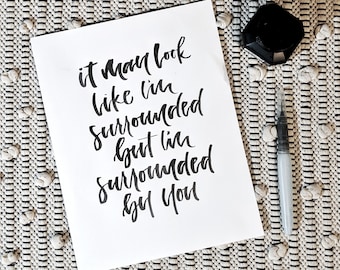 it may look
like i'm
surrounded
but i'm
surrounded
by you